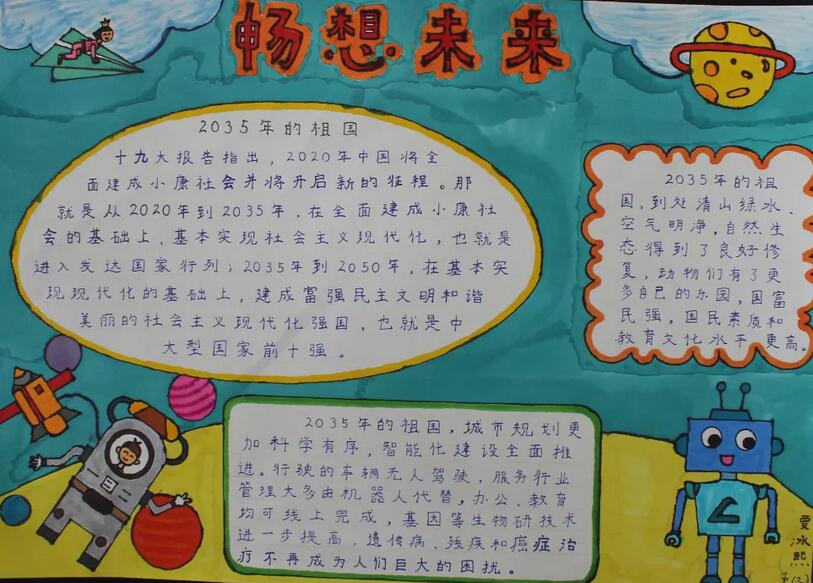 畅想未来
2035年的祖国
十九大报告指出，2020年中国将全
面建成小康社会并将开启新的征程。那
就是从2020年到2035年，在全面建成小康社
会的基础上，基本实现社会主义现代化，也就是
进入发达国家行列；2035年到2050年，在基本实
现现代化的基础上，建成富强民主文明和谐
美丽的社会主义现代化强国，也就是中
大型国家前十强。
2035年的祖
国，到处清山绿水、
空气明净，自然生
态得到了良好修
复，动物们有了更
多自己的乐园，国富
民强，国民素质和
教育文化水平更高。
2035年的祖国，城市规划更
加科学有序，智能化建设全面推
进。行驶的车辆无人驾驶，服务行业
管理大多由机器人代替，办公、教育
均可线上完成，基因等生物研技术
进一步提高，遗传病、残疾和癌症治
疗不再成为人们巨大的困扰。
贾冰熙